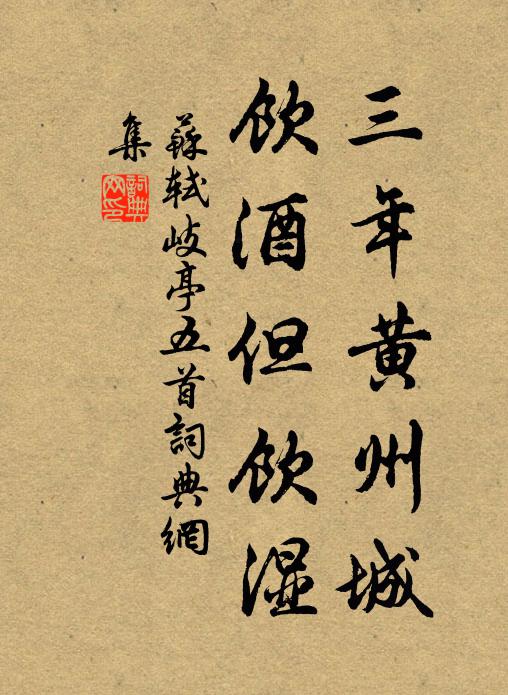 三年黄州城
饮酒但饮湿
蘇軾岐亭五首詞典網
集
詞典
网印